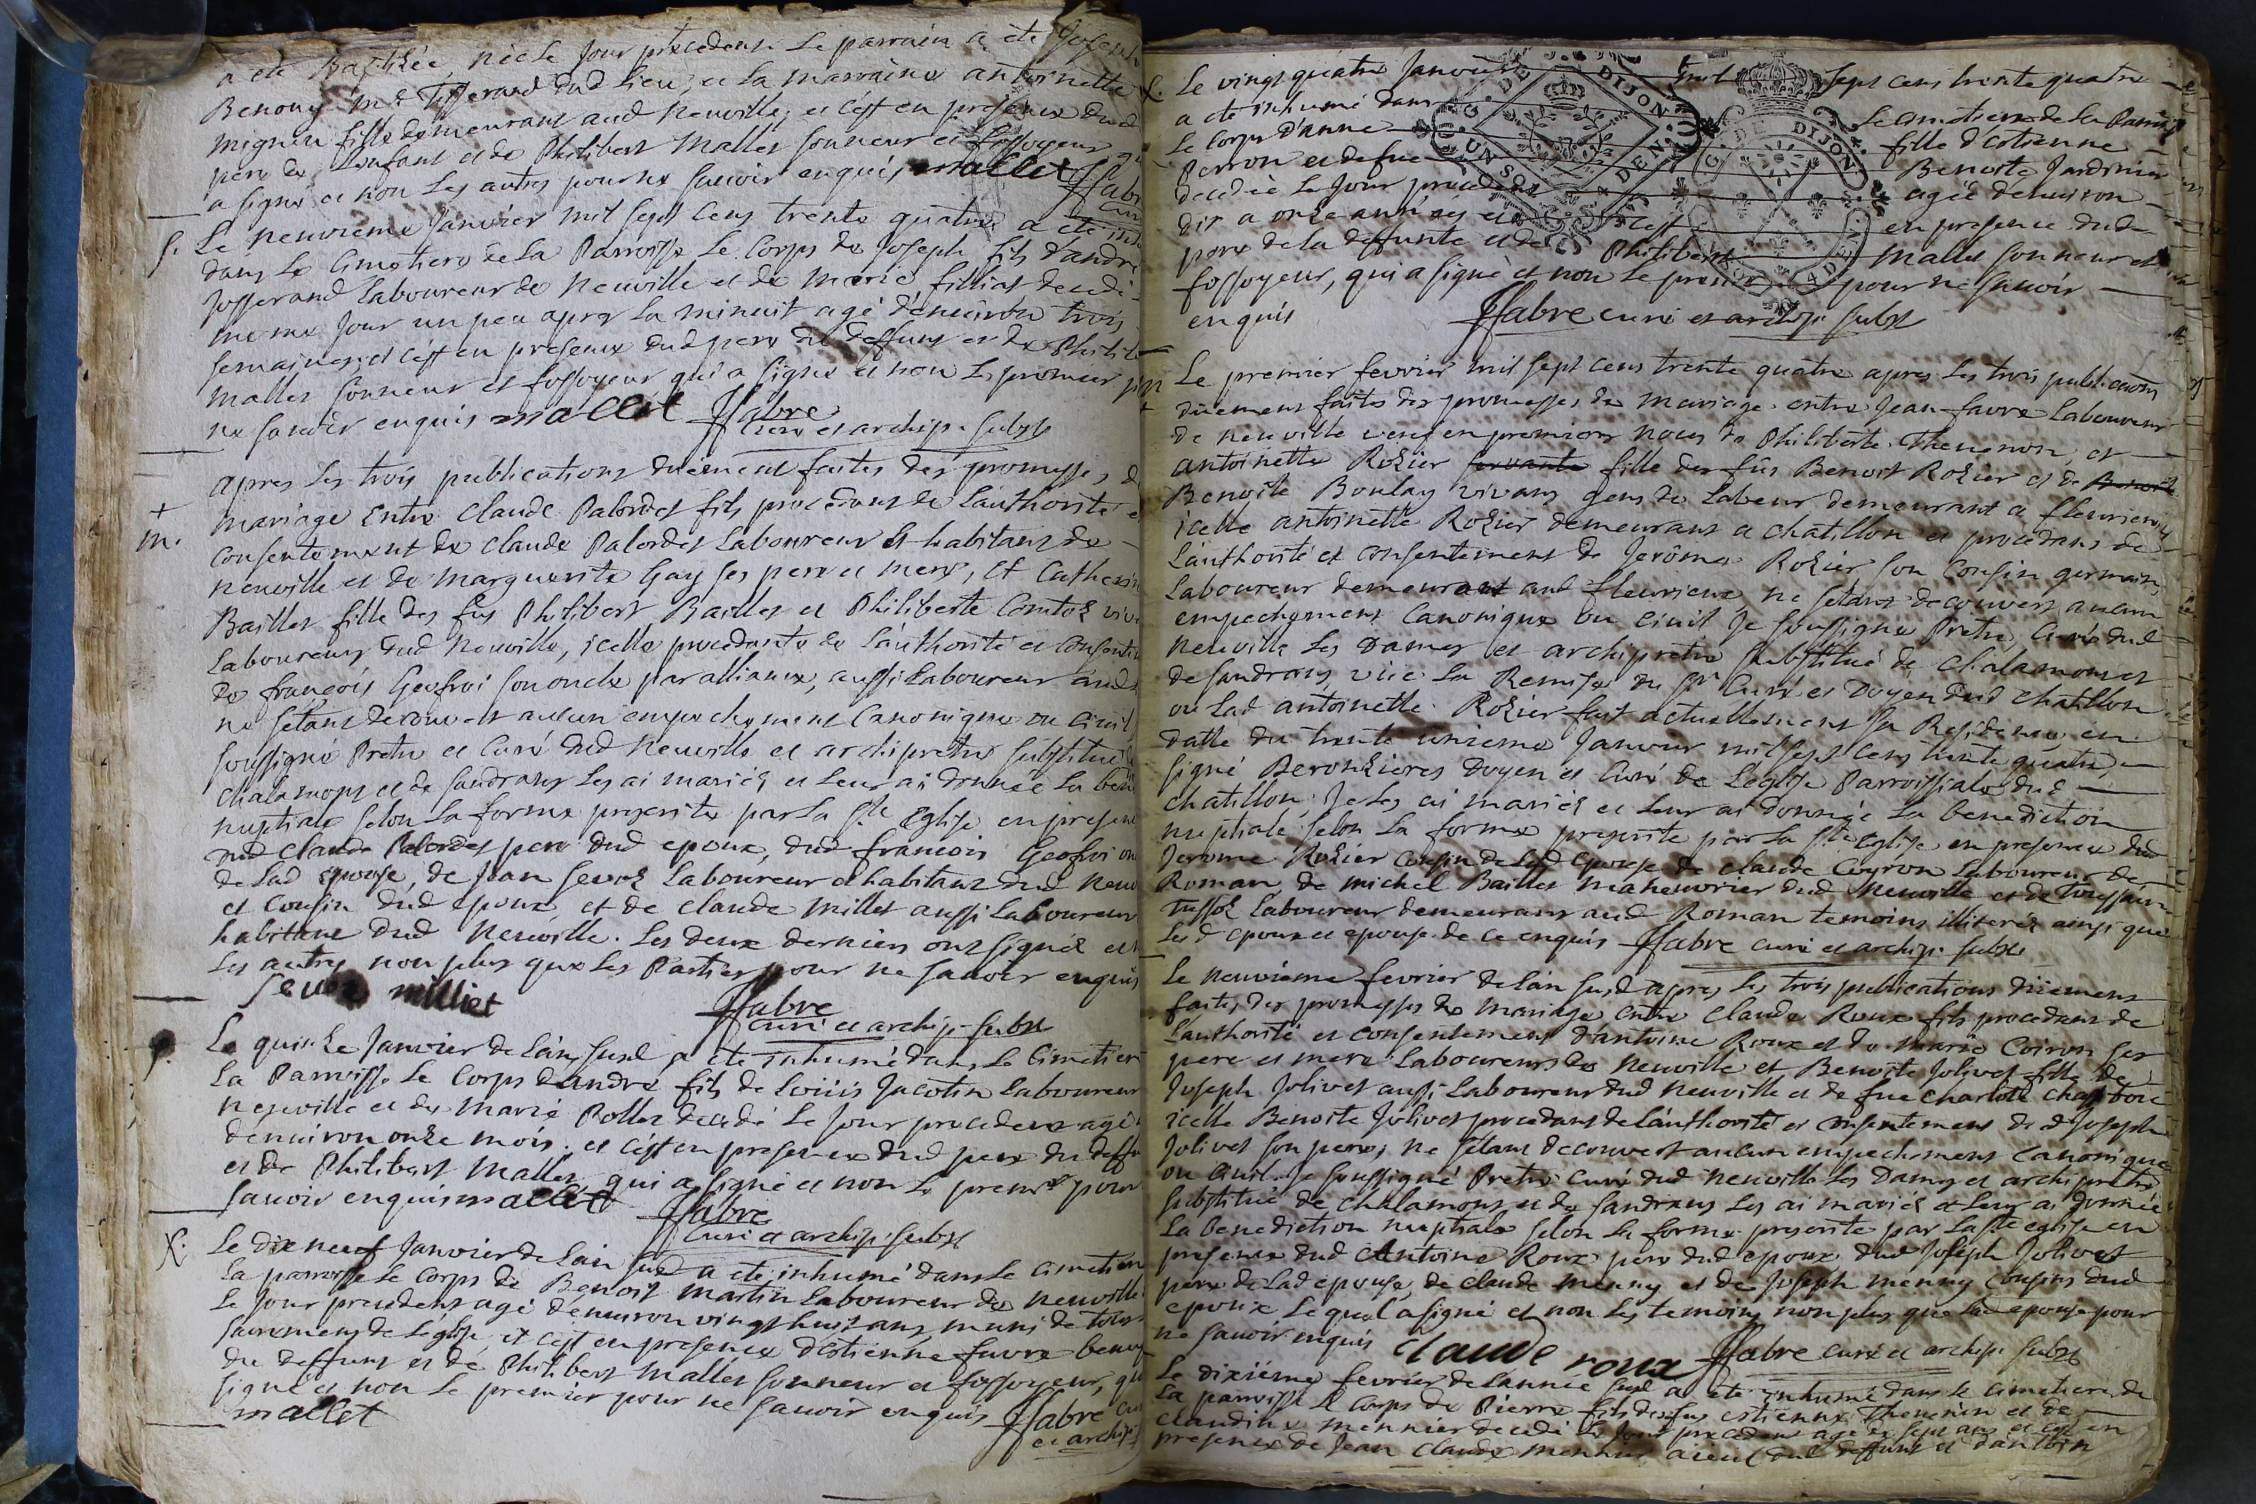 a été Baptisée, née le Jour précedent le parrain a été Joseph
Benony md Tisserand dud lieu, et la marraine antoinette
mignin fille demeurant aud Neuville, et c'est en présence dud
pere de L'enfant et de Philibert Mallet sonneur et fossoyeur qui
a signé et non les autres pour ne savoir enquis mallet ffabre
S. Le neuvieme Janvier mil sept cens trente quatre a été inh
dans le Cimetiere de la Parroisse le Corps de Joseph fils d'andré
Josserand Laboureur de Neuville et de Marie filliat decedé
meme Jour un peu apres la minuit agé d'environ trois
semaines, et c'est en presence dud pere du deffunt et de Philib
mallet sonneur et fossoyeur qui a signé et non le premier p
ne savoir enquis mallet ffabre
Curé et archip. subst
apres les trois publications duëment faites des promesses d
m. mariage entre Claude Palordet fils procedant de l'authorité e
consentement de Claude Palordet Laboureur et habitant de
neuville et de marguerite Gay ses pere et mere, et Catherin
Baillet fille des fûs Philibert Baillet et Philiberte Comtoz viv
Laboureurs dud Neuville, icelle procedante de l'authorité et consent
de françois Geofroi son oncle par alliance, aussi Laboureur aud
ne s'etant decouvert aucun empechement Canonique ou Civil
soussigné Pretre et Curé dud Neuville et archipretre substitué
Chalamont et de sandrans les ai mariéz et leur ai donnée la ben
nuptiale selon la forme prescrite par la Ste Eglise en presen
dud Claude Palordet pere dud epoux, dud francois Geofroi on
de lad Epouse, de Jean Sevoz Laboureur et habitant dud neuv
et Cousin dud epoux et de Claude Millet aussi Laboureur
habitant dud Neuville. Les deux derniers ont signéz et
les autres non plus que les Parties pour ne savoir enquis
milliet ffabre
Curé et archip. subst
Le quinze Janvier de l'an susd a été inhumé dans le Cimetier
la Parroisse le Corps d'andré fils de Loüis Jacotin laboureur
neuville et de Marie Pollet decedé le Jour precedent agé
d'environ onze mois. et c'est en presence dud pere du deffu
et de Philibert Mallet qui a signé et non le premr pour
savoir enquis mallet ffabre
Curé et archip. subst
Le dix neuf Janvier de l'an susd a été inhumé dans le Cimetier
la parroisse le Corps de Benoit Martin Laboureur de neuville
le Jour precedent agé d'environ vingt huit ans, muni de tous
sacremens de l'eglise et c'est en presence d'Estienne favre beau
du deffunt et de Philibert Mallet sonneur et fossoyeur, qu
signé et non le premier pour ne savoir enquis ffabre Cur
mallet et archip
Le vingt quatre Janvier mil sept cens trente quatre
a eté inhumé dans le cimetiere de la Parroi
le Corps d'anne fille d'Estienne
Perron et de fue Benoite Jardinier
decedée le Jour precedent agée d'environ
dix a onze années et c'est en presence dud
pere de la deffunte et de Philibert Mallet sonneur et
fossoyeur, qui a signé et non le premier pour ne savoir
enquis ffabre curé et archip. subst
C. DE DIJON.
UN SOL 4 DEN.
G. DE DIJON.
4 DEN.
Le premier fevrier mil sept cens trente quatre apres les trois publications
düement faites des promesses de Mariage entre Jean favre Laboureur
de neuville veuf en premieres noces de Philiberte Thevenon, et
antoinette Rozier servante fille des fûs Benoit Rozier et de Benoite
Benoite Boulay vivans gens de Labeur demeurant a fleurieux
icelle antoinette Rozier demeurant a chatillon et procedant de
L'authorité et consentement de Jerôme Rozier son Cousin germain
laboureur demeurant aud fleurieux ne s'etant decouvert aucun
empechement Canonique ou Civil Je soussigné Pretre, Curé dud
neuville les Dames et archipretre substitué de Chalamont et
de sandrans vûe la Remise du sr Curé et Doyen dud Chatillon
ou lad antoinette Rozier fait actuellement sa Residence en
datte du trente unieme Janvier mil sept cens trente quatre,
signé Beronzieres Doyen et Curé de L'eglise Parroissiale dud
chatillon, Je les ai mariéz et leur ai donnée la benediction
nuptiale selon la forme prescrite par la Ste Eglise en presence dud
Jerome Rozier Cousin de lad epouse de Claude Coyron Laboureur de
Roman, de Michel Baillet manouvrier dud Neuville et de Toussain
Tussoz laboureur demeurant aud Roman temoins illiteréz ainsi que
lesd epoux et epouse de ce enquis ffabre curé et archip. subst
Le neuvieme fevrier de l'an susd apres les trois publications düement
faites des promesses de mariage entre Claude Roux fils procedant de
l'authorité et consentement d'antoine Roux et de Marie Coiron ses
pere et mere Laboureurs de Neuville et Benoite Jolivet fille de
Joseph Jolivet aussi Laboureur dud Neuville et de fue Charlote
icelle Benoite Jolivet procedant de L'authorité et consentement dud Joseph
Jolivet son pere; ne s'etant decouvert aucun empechement Canonique
ou Civil Je soussigné Pretre Curé dud neuville les Dames et archipretre
substitué de Chalamont et de sandrans les ai mariéz et leur ai donnée
la Benediction nuptiale selon la forme prescrite par la Ste eglise en
presence dud Antoine Roux pere dud epoux, dud Joseph Jolivet
pere de lad epouse, de Claude menny et de Joseph menny Cousins dud
epoux lequel a signé et non les temoins non plus que lad epouse pour
ne savoir enquis Claude roux ffabre curé et archip. subst
Le dixiéme fevrier de l'année susd a été inhumé dans le Cimetiere de
la parroisse le Corps de Pierre fils de fûs estienne Thevenin et de
Claudine mennier decedé le Jour precedent agé de sept ans et c'est en
presence de Jean Claude Mennier aieul dud deffunt et d'antoin